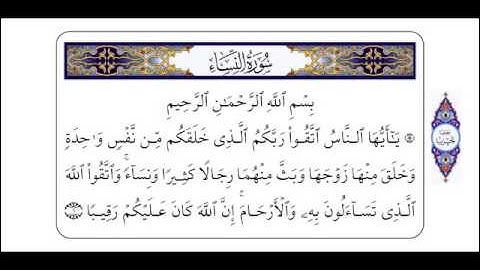 سُورَةُ النِّسَاءِ
بِسْمِ ٱللَّهِ ٱلرَّحْمَـٰنِ ٱلرَّحِيمِ
يَـٰٓأَيُّهَا ٱلنَّاسُ ٱتَّقُوا۟ رَبَّكُمُ ٱلَّذِى خَلَقَكُم مِّن نَّفْسٍ وَٰحِدَةٍ
وَخَلَقَ مِنْهَا زَوْجَهَا وَبَثَّ مِنْهُمَا رِجَالًا كَثِيرًا وَنِسَآءً ۚ وَٱتَّقُوا۟ ٱللَّهَ
ٱلَّذِى تَسَآءَلُونَ بِهِۦ وَٱلْأَرْحَامَ ۚ إِنَّ ٱللَّهَ كَانَ عَلَيْكُمْ رَقِيبًا